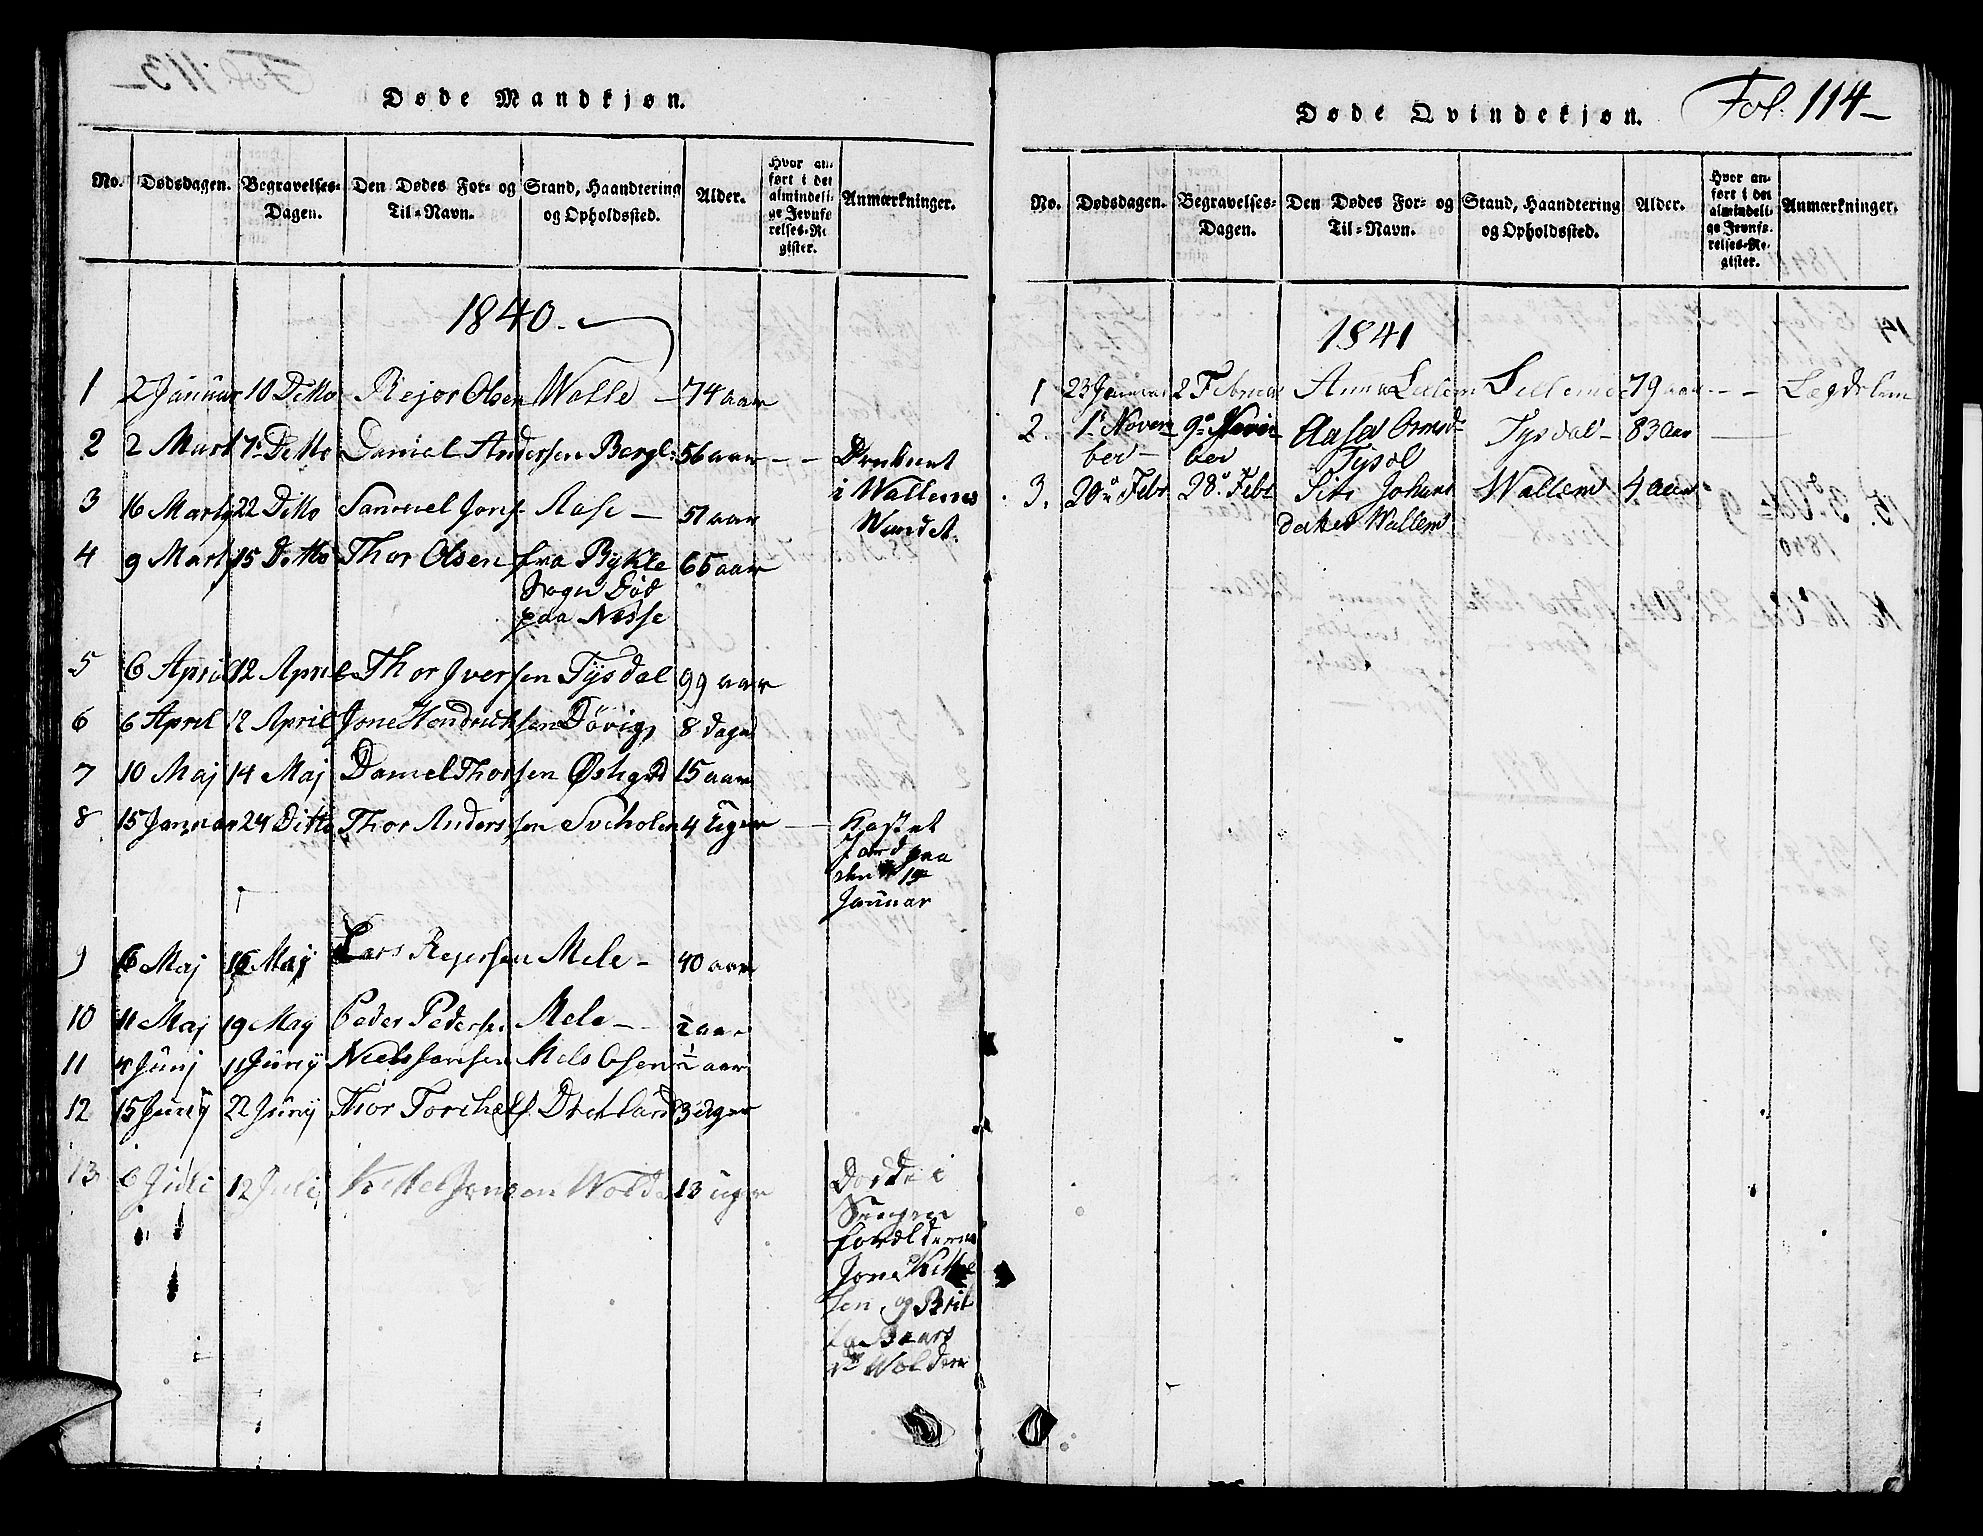 Døde Mandkjøn.
No. Dødsdagen. Begravelses-Dagen. Den Dødes For- og Til-Navn. Stand, Haandtering og Opholdssted. Alder. Hvor anført i det almindelige Jevnførelses-Register. Anmærkninger.
1840.
1 2 Januar 10 Ditto Rejor Olsen Walle 74 aar
2 2 Mart 7de Ditto Daniel Andersen Bergl. 56 aar - - Druknet
i Wallems
Wandet.
3 16 Marty 22 Ditto Samuel Jons. Aase - 51 aar
4 9 Marty 15 Ditto Thor Olsen fra Bykle 65 aar
Sogn Død
paa Nesse
5 6 April 12 April Thor Iversen Tysdal 99 aar
6 6 April 12 April Jone Hendrichsen Døvig 8 dage
7 10 Maj 14 Maj Daniel Thorsen 15 aar
8 15 Januar 24 Ditto Thor Anderssen Sviholen 4 Uger - Kastet
Jord paa
den 19
Januar
9 6 Maj 16 Maj Lars Rejersen Mele - 40 aar
10 11 Maj 19 May Peder Pedersen Mele - ½ aar
11 4 Junj 11 Junij Niels Jansen ½ aar
12 15 Junij 22 Junij Thor Torchels. 3 Uger
13 6 Juli 12 Julij Kittel Jonsen Wolde 13 uger
forældrene
Jone Kittel
sen og Brit
Wolden
Fol. 114-
Døde Qvindekjøn.
No. Dødsdagen. Begravelses-Dagen. Den Dødes For- og Til-Navn. Stand, Haandtering og Opholdssted. Alder. Hvor anført i det almindelige Jevnførelses-Register. Anmærkninger.
1841
1 23 Januar 2 Februar Anna 79 aar - - Lægdslem
2. 1e Novem 9de Novem Aasa Tysdal - 83 aar
ber - ber
3. 20de Febr 28de Febr Siri Johans Wallem 4 aar
datter Wallem